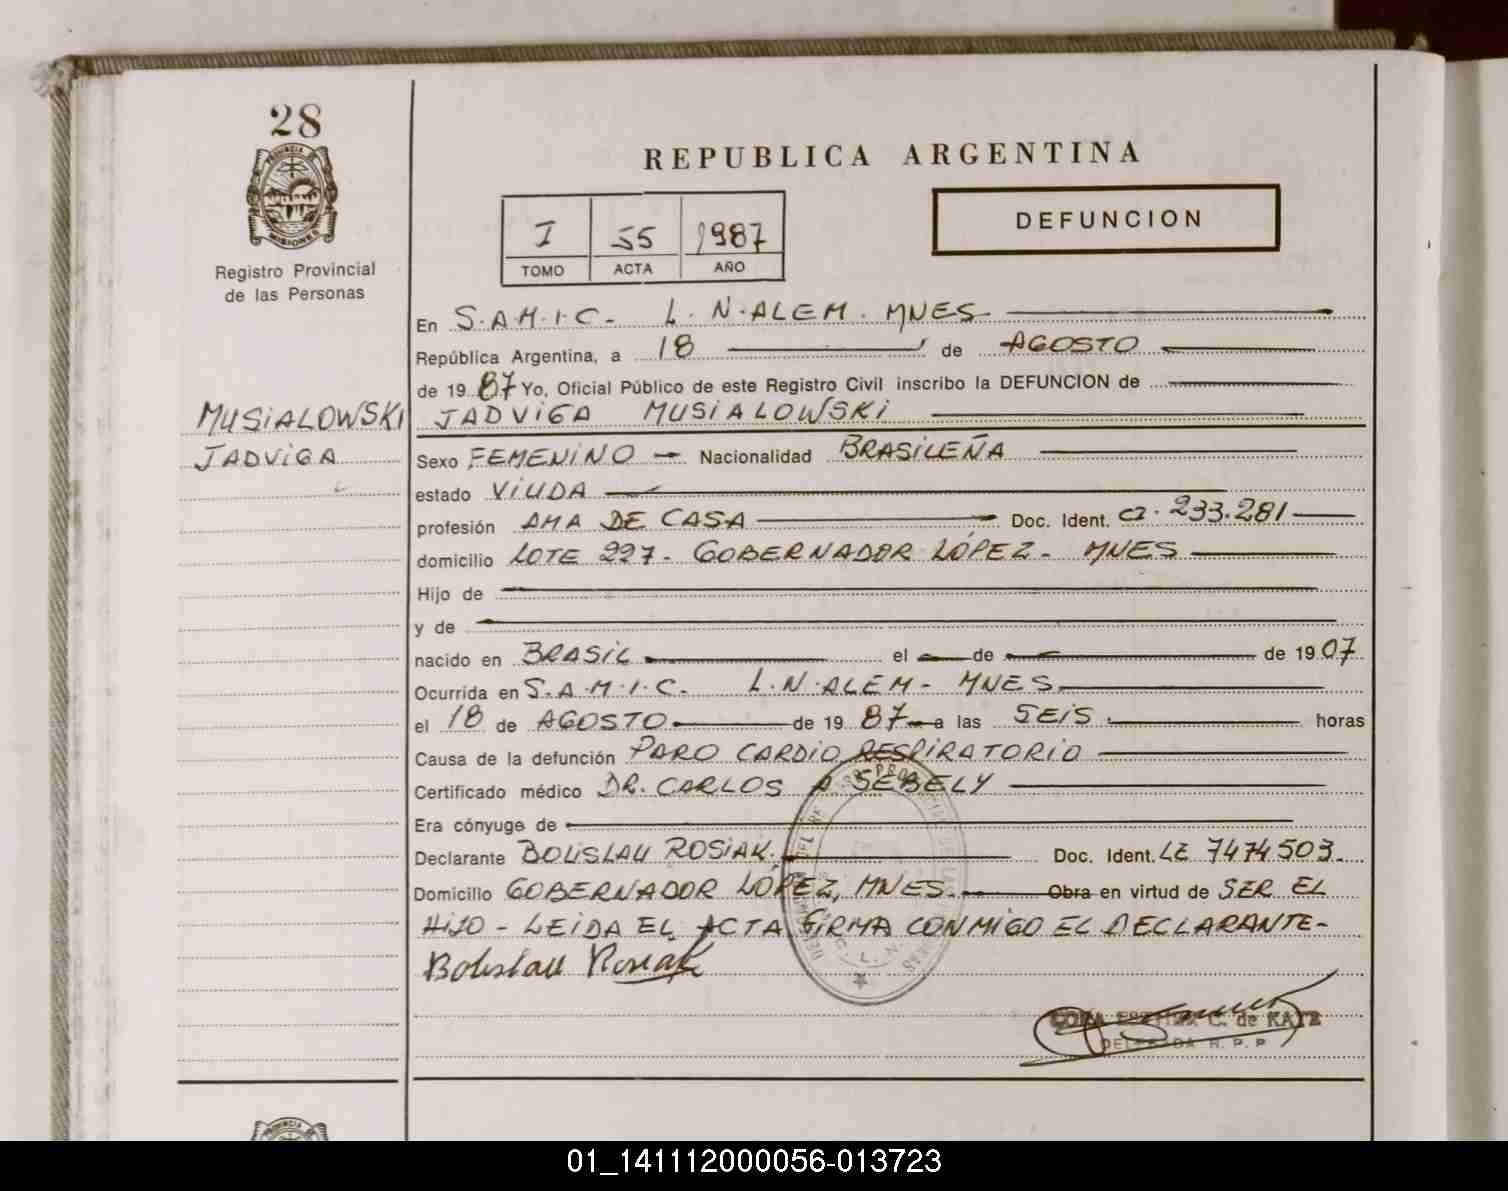 28
PROVINCIA DE
MISIONES
Registro Provincial
de las Personas
MUSIALOWSKI
JADVIGA
REPUBLICA ARGENTINA
I 55 1987
TOMO ACTA AÑO
DEFUNCION
En S.A.M.I.C. L. N. ALEM. MNES
República Argentina, a 18 de AGOSTO
de 19 87 Yo, Oficial Público de este Registro Civil inscribo la DEFUNCION de
JADVIGA MUSIALOWSKI
Sexo FEMENINO Nacionalidad BRASILEÑA
estado VIUDA
profesión AMA DE CASA Doc. Ident. CI. 233.281
domicilio LOTE 227 - GOBERNADOR LÓPEZ - MNES
Hijo de
y de
nacido en BRASIL el de de 19 07
Ocurrida en S.A.M.I.C. L.N. ALEM - MNES
el 18 de AGOSTO de 19 87 a las SEIS horas
Causa de la defunción PARO CARDIO RESPIRATORIO
Certificado médico DR. CARLOS A SEBELY
Era cónyuge de
Declarante BOLISLAU ROSIAK. Doc. Ident. LE 7474503.
Domicilio GOBERNADOR LÓPEZ, MNES. Obra en virtud de SER EL
HIJO - LEIDA EL ACTA FIRMA CONMIGO EL DECLARANTE-
Bolislau Rosiak
C. de KATZ
DELEGADA R. P. P.
PROVINCIA DE
01_141112000056-013723